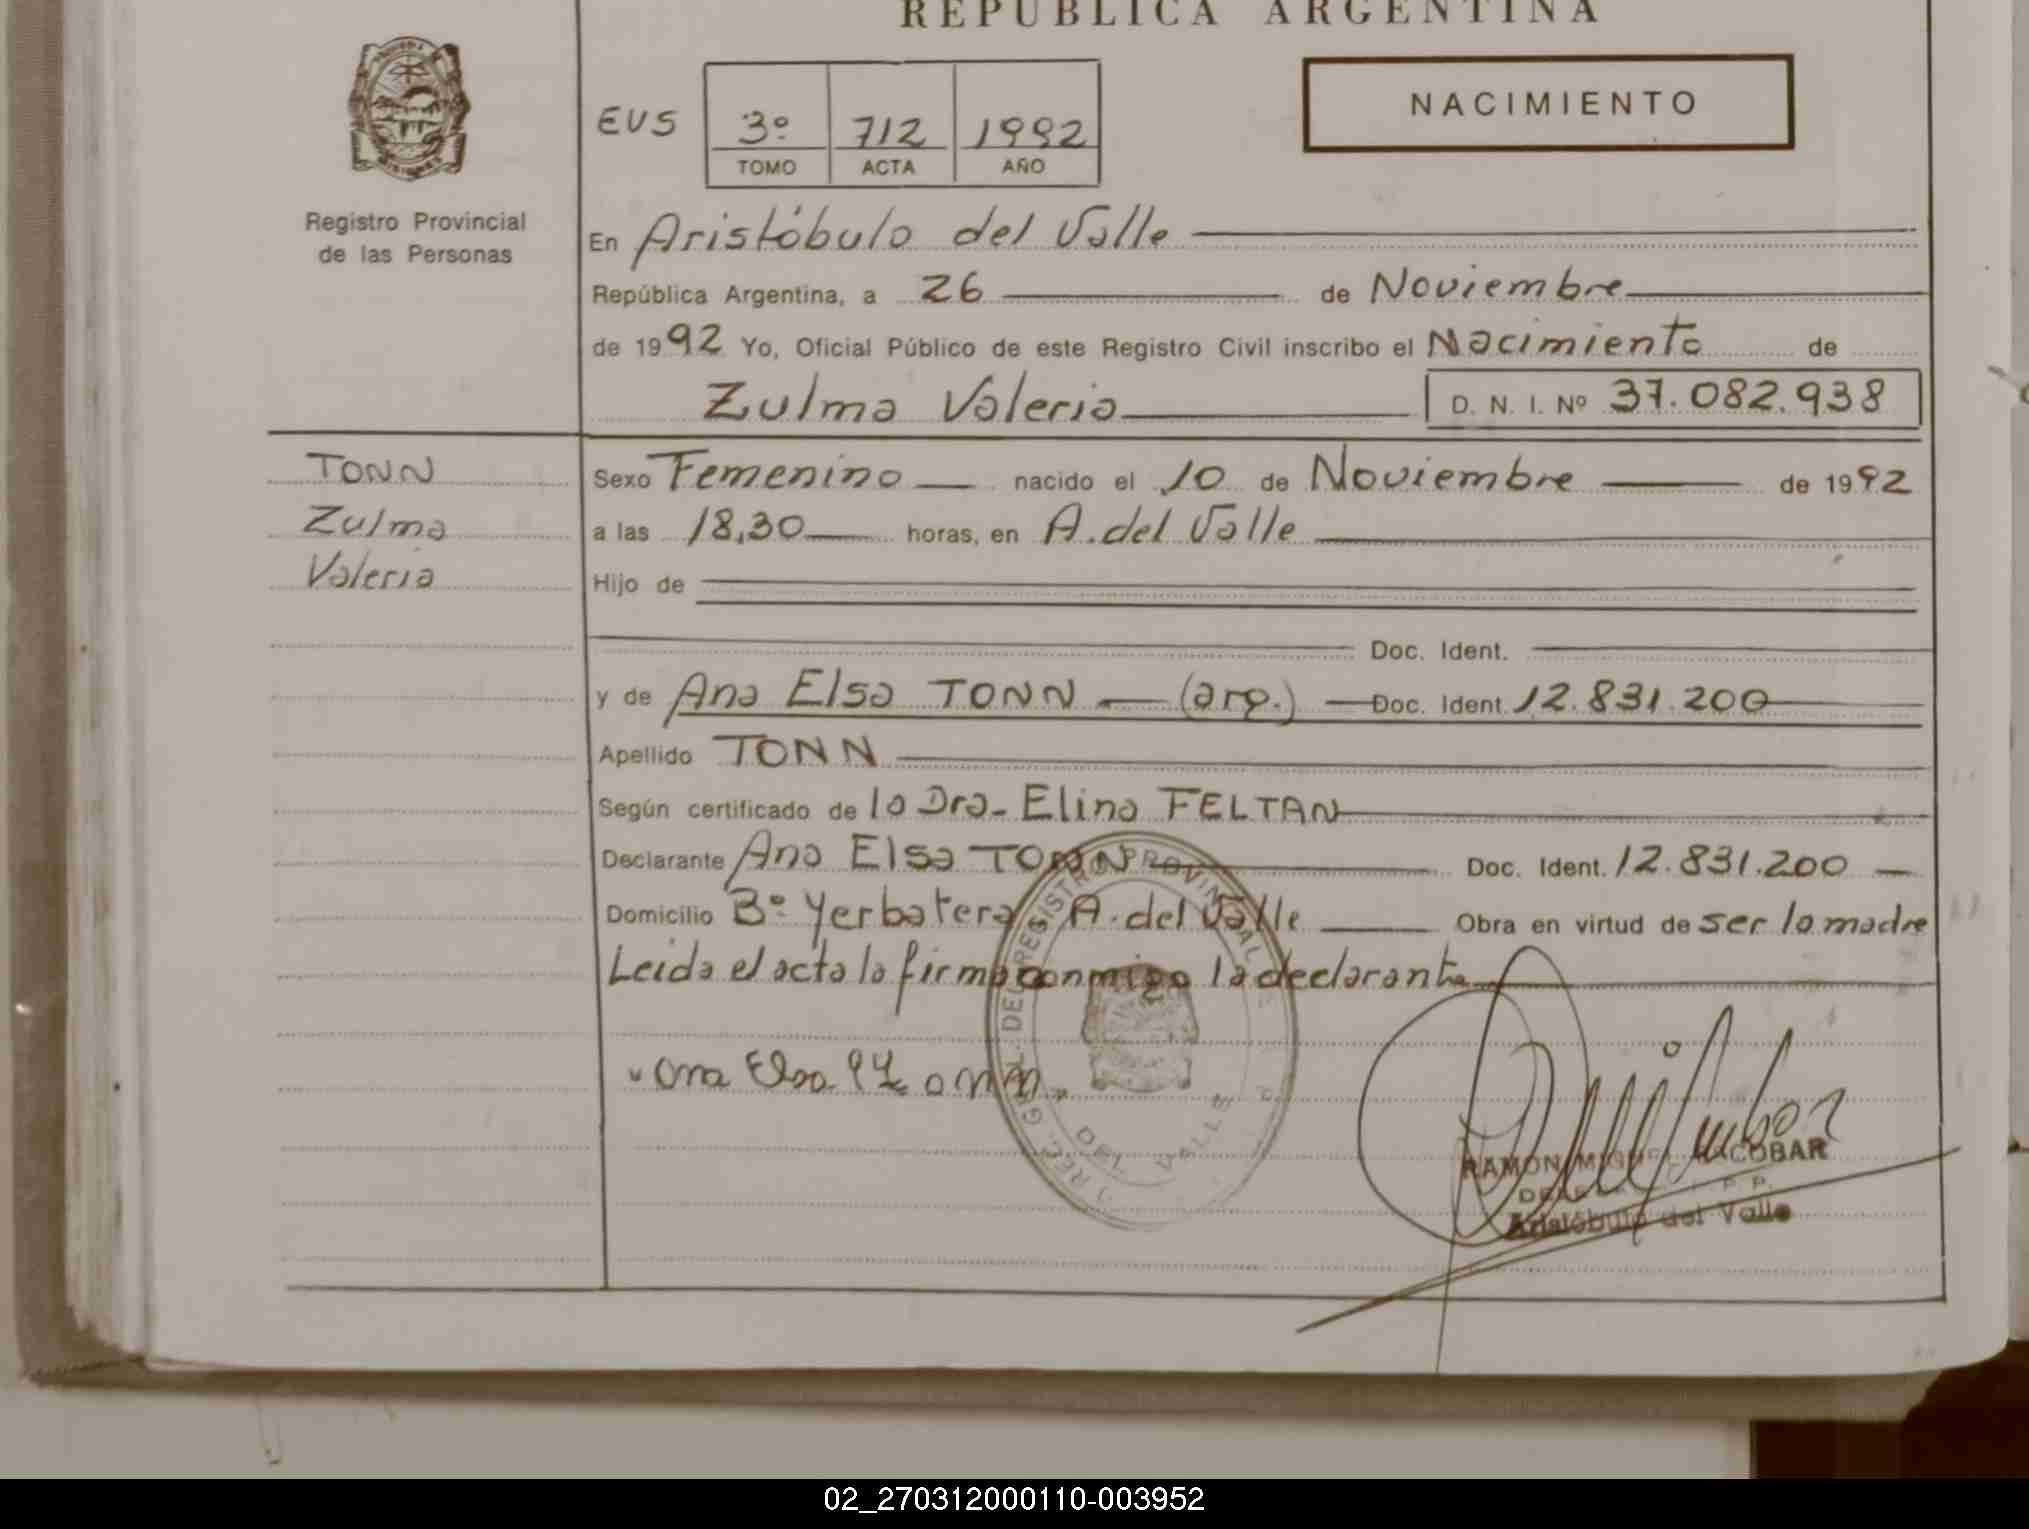 REPÚBLICA ARGENTINA
NACIMIENTO
EUS 3º 712 1992
TOMO ACTA AÑO
Registro Provincial
de las Personas
En Aristóbulo del Valle
República Argentina, a 26 de Noviembre
de 1992 Yo, Oficial Público de este Registro Civil inscribo el Nacimiento de
Zulma Valeria D. N. I. Nº 37.082.938
TONN
Zulma
Valeria
Sexo Femenino nacido el 10 de Noviembre de 1992
a las 18,30 horas, en A. del Valle
Hijo de
Doc. Ident.
y de Ana Elsa TONN (arg.) Doc. Ident. 12.831.200
Apellido TONN
Según certificado de la Dra. Elina FELTAN
Declarante Ana Elsa TONN Doc. Ident. 12.831.200
Domicilio Bº Yerbatera A. del Valle Obra en virtud de ser la madre
Leida el acta la firma conmigo la declarante
Ana Elsa
DEL REGISTRO PROVINCIAL
VALLE
RAMON MIGUEL ESCOBAR
Aristóbulo del Valle
02_270312000110-003952